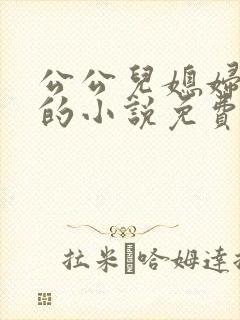 公公兒媳婦
的小說免費
拉米 哈姆達